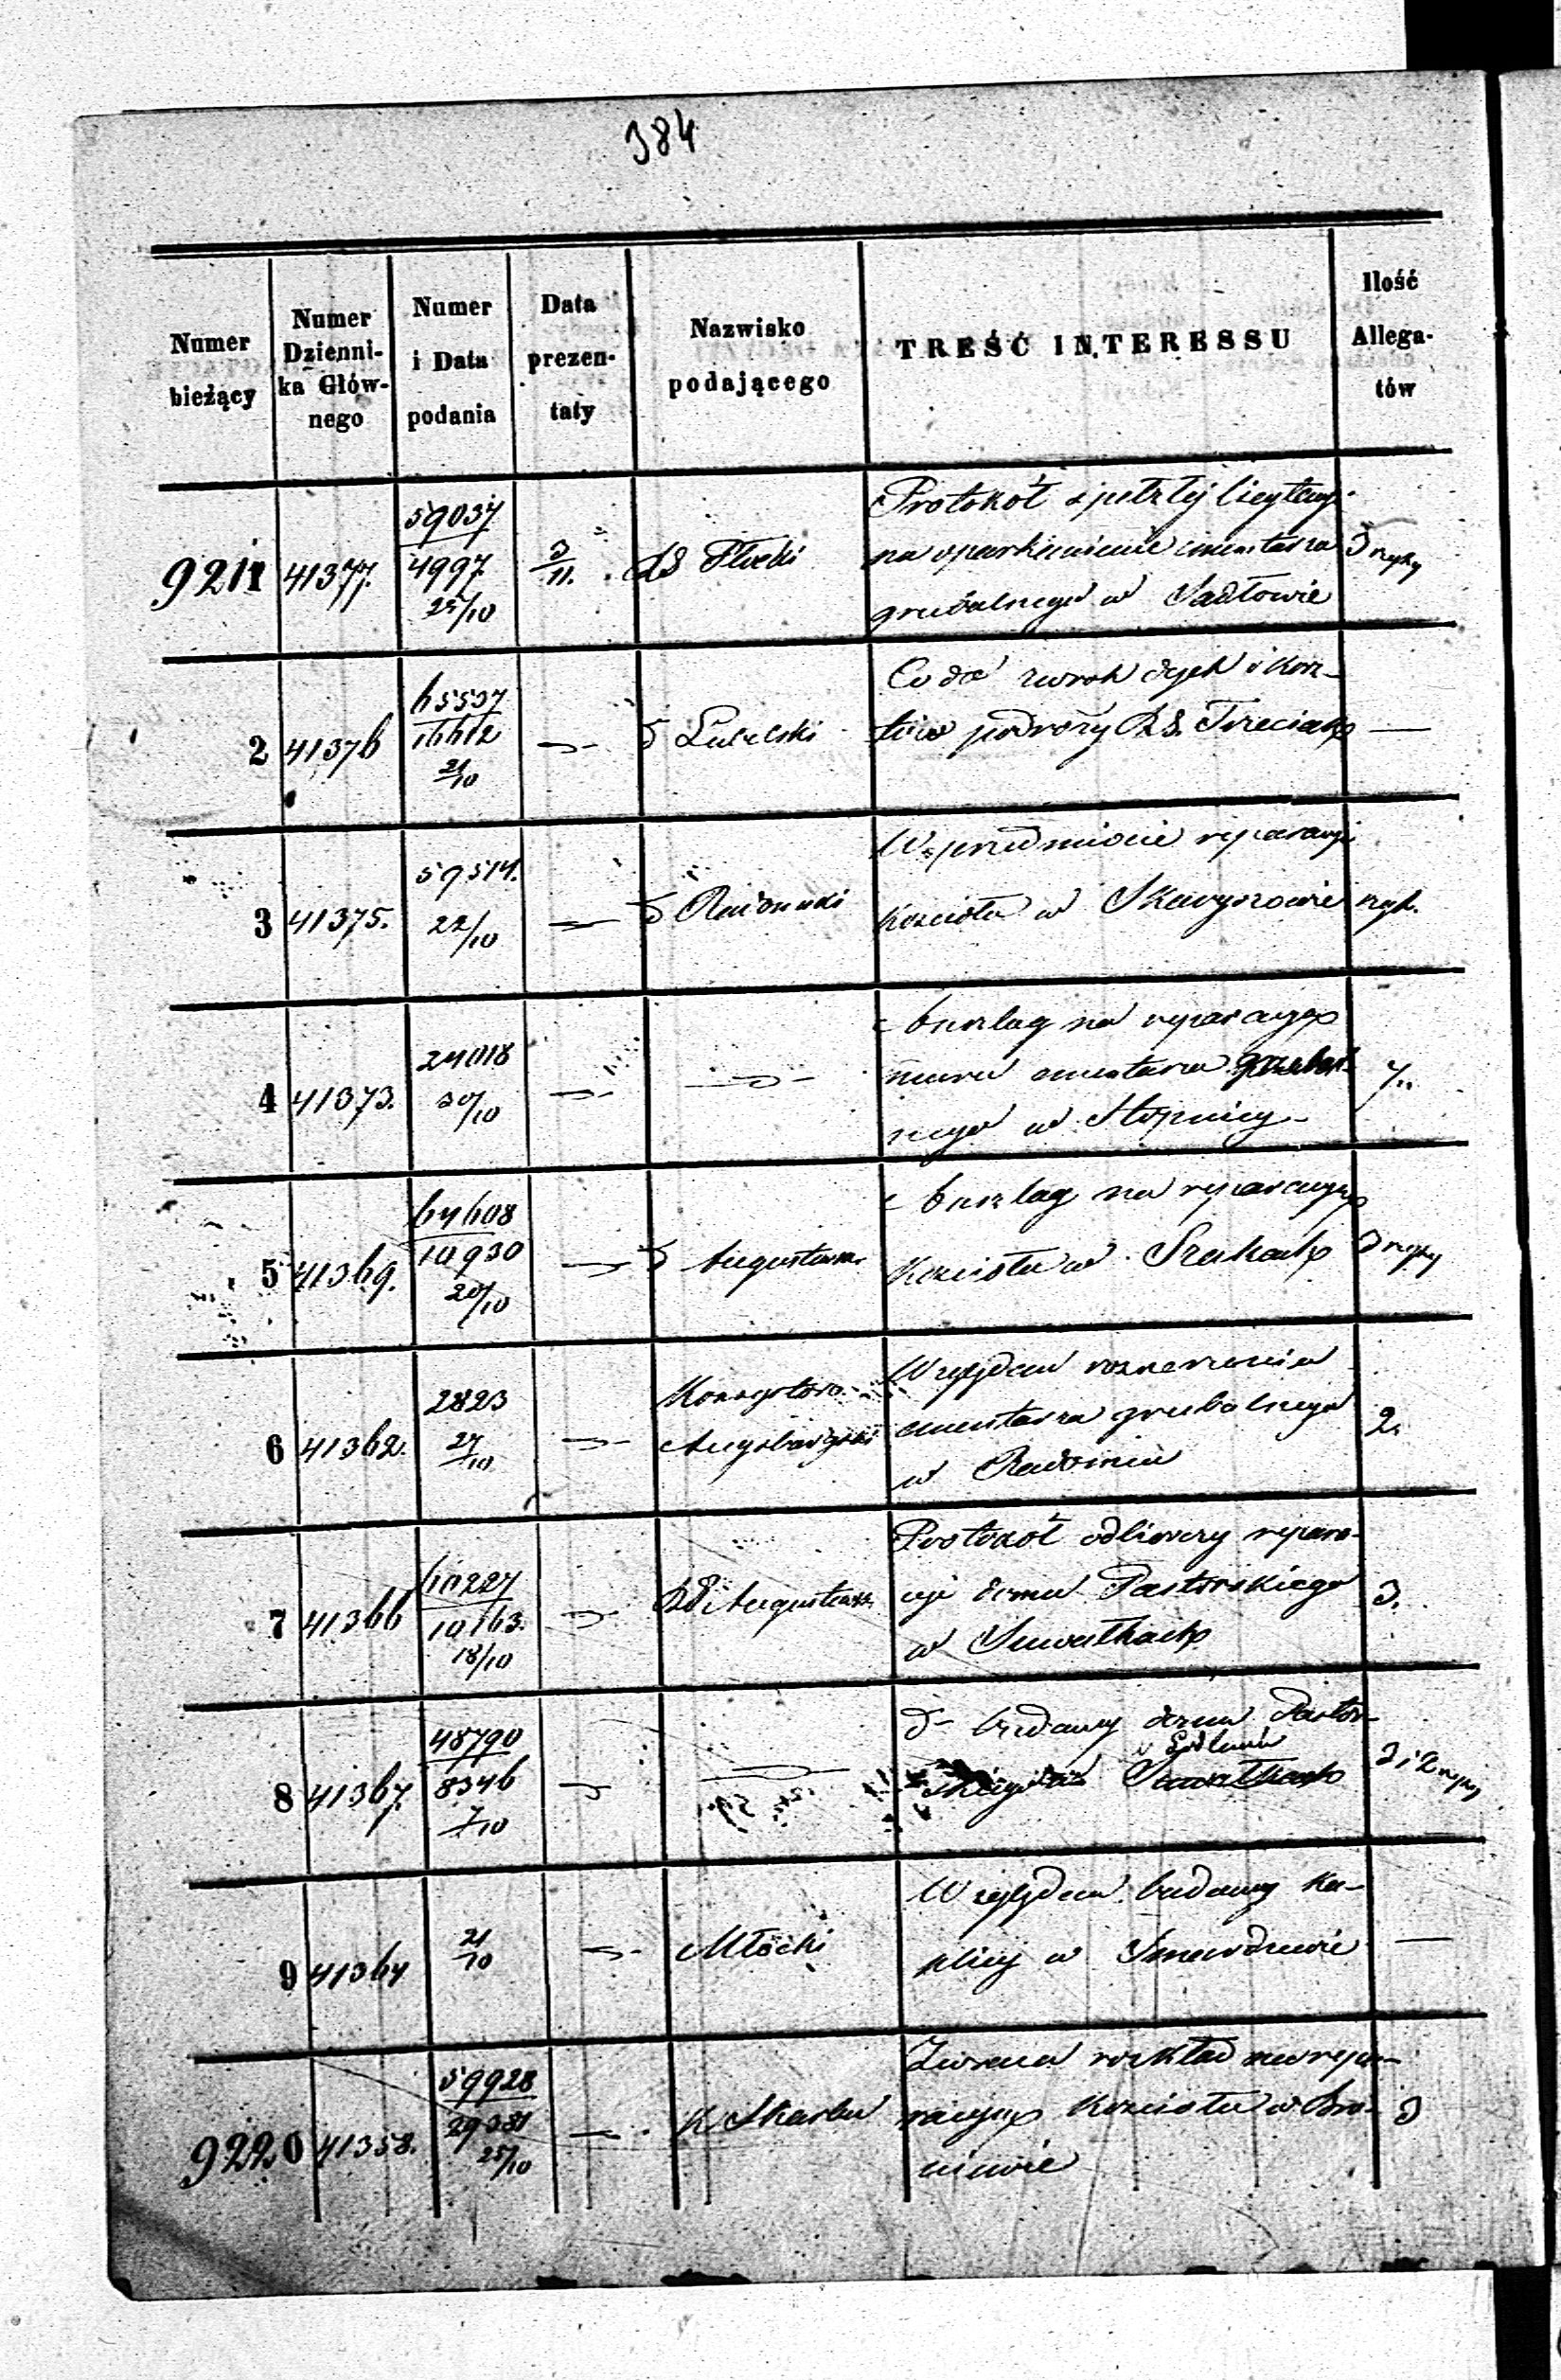 384
Numer bieżący
Numer Dzienni-ka Głów-nego
Numer i Data podania
Data prezen-taty
Nazwisko podającego
TREŚĆ INTERESSU
Ilość Allega-tów
9211 41377. 59037 4997 25/10 3/11. Płocki
Protokół licytacyi
na oparkanienie cmentarza 3
grzebalnego w Sadłowie
2 41376 65537 21/10 Lubelski
Co do zwrotu dyet i kosz-
tów podróży —
3 41375. 59514. 22/10 Radomski
W przedmiocie reparacyi
kościoła w Skaryszowie
4 41373. 24018 30/10
na reparacyę
muru cmentarza grzebal-
nego w Stopnicy
5 41369. 64608 10930 20/10 Augustowski
na reparacyę
kościoła w
6 41362. 2823 27/10 Konsystorz
Augsburski
Względem rozszerzenia
cmentarza grzebalnego 2.
w Radominie
7 41366 60227 10163. 18/10 Augustowski
Protokół odbiorczy repara-
cyi domu Pastorskiego 3.
w Suwałkach
8 41367. 48790 8346 7/10
budowy domu Pastor-
skiego Suwałkach 3 i 2
9 41364 21/10 Młocki
Względem budowy Ka-
plicy w —
9220 41358. 59928 29331 25/10 K. Skarbu
Zwraca rozkład na repa-
racyę Kościoła w Bro- 3